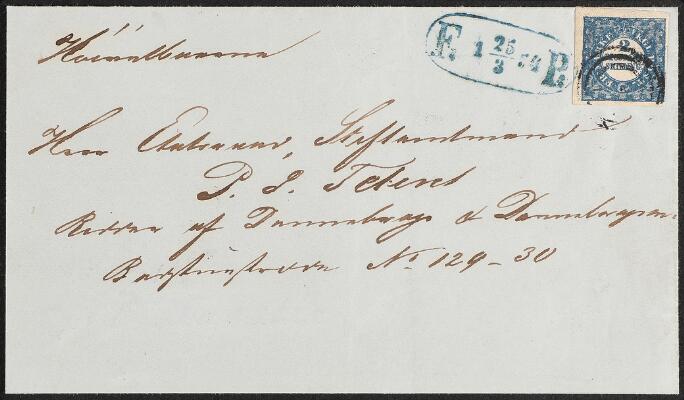 F. 1 25/3 54 P.
2
Höivelbaarne
Herr Etatsraad, Stiftamtmand
P. J. Tetens
Ridder af Dannebroge & Dannebrogsm.
Badstuestræde No 129-30